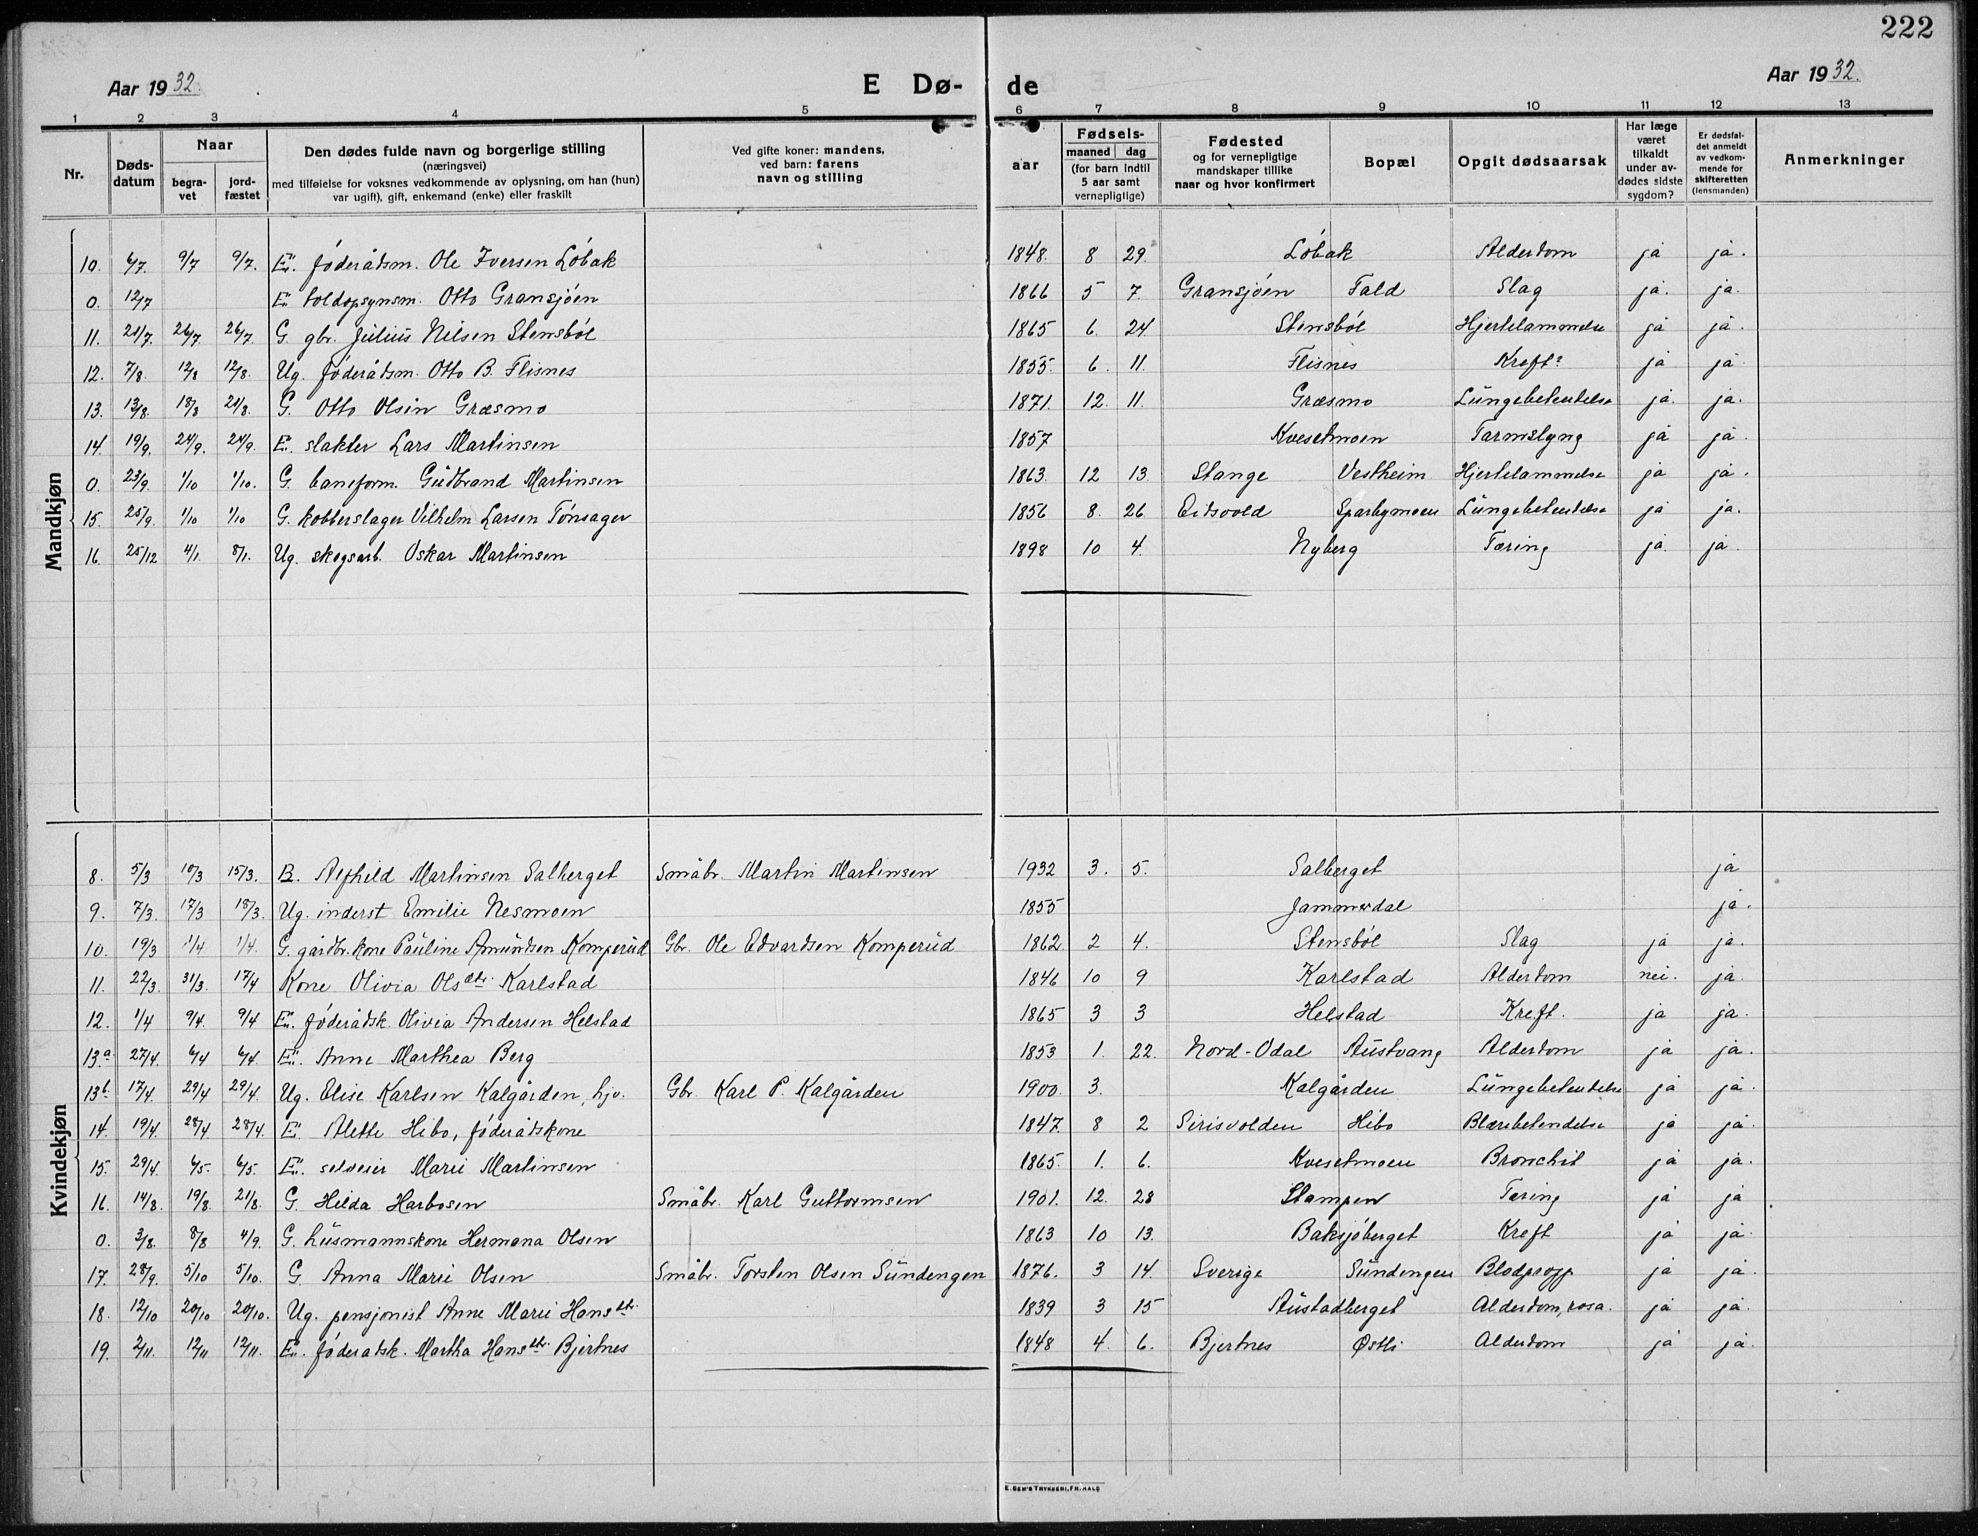 222
Aar 1932. E Dø- de Aar 1932.
1 2 3 4 5 6 7 8 9 10 11 12 13
Nr.
Døds-
datum
Naar
begra-
vet
jord-
fæstet
Den dødes fulde navn og borgerlige stilling
(næringsvei)
med tilføielse for voksnes vedkommende av oplysning, om han (hun)
var ugift), gift, enkemand (enke) eller fraskilt
Ved gifte koner: mandens,
ved barn: farens
navn og stilling
aar
Fødsels-
maaned dag
(for barn indtil
5 aar samt
vernepligtige)
Fødested
og for vernepligtige
mandskaper tillike
naar og hvor konfirmert
Bopæl
Opgit dødsaarsak
Har læge
været
tilkaldt
under av-
dødes sidste
sygdom?
Er dødsfal-
det anmeldt
av vedkom-
mende for
skifteretten
(lensmanden)
Anmerkninger
Mandkjøn
10. 6/7. 9/7 9/7. E. føderådsm. Ole Iversen Løbak 1848. 8 29. Løbak Alderdom ja ja.
0. 12/7 E. toldopsynsm. Otto Gransjøen 1866 5 7. Gransjøen Fald Slag ja. ja.
11. 21/7. 26/7. 26/7. G. gbr. Julius Nilsen Stensbøl 1865 6. 24 Stensbøl Hjertelammelse ja ja.
12. 7/8. 12/8 12/8. Ug. føderådsm. Otto B. Flisnes 1855. 6. 11. Flisnes Kreft? ja ja.
13. 13/8. 18/8 21/8. G. Otto Olsen Græsmo 1871. 12. 11. Græsmo Lungebetendelse ja. ja.
14. 19/9. 24/9. 24/9. E. slakter Lars Martinsen 1857 Kvesetmoen Tarmslyng ja ja.
0. 23/9. 1/10 1/10. G. baneform. Gudbrand Martinsen 1863. 12 13. Stange Vestheim Hjertelammelse ja ja.
15. 25/9. 1/10 1/10 G. kobberslager Vilhelm Larsen Tønsager 1856 8. 26 Eidsvold Sparbymoen Lungebetendelse ja ja.
16. 25/12 4/1. 8/1. Ug. skogsarb. Oskar Martinsen 1898 10 4. Nyberg Tæring ja. ja.
Kvindekjøn
8. 5/3 10/3 15/3. B. Alfhild Martinsen Salberget Småbr. Martin Martinsen 1932 3. 5. Salberget ja
9. 7/3. 17/3 18/3. Ug. inderst Emilie Nesmoen 1855 Jammerdal ja.
10. 19/3 1/4 1/4. G. gårdbr.kone Pauline Amundsen Komperud Gbr. Ole Edvardsen Komperud 1862 2 4. Stensbøl Slag ja ja.
11. 22/3. 31/3. 17/4 Kone Olivia Olsdtr. Karlstad 1846 10 9 Karlstad Alderdom nei. ja.
12. 1/4 9/4. 9/4 E. føderådsk. Olivia Andersen Helstad 1865 3 3 Helstad Kreft. ja ja.
13a. 27/4. 6/4 6/4. E. Anne Marthea Berg 1853 1. 22. Nord-Odal Austvang Alderdom ja ja.
13b. 17/4. 29/4 29/4. Ug. Elise Karlsen Kalgården, hjv. Gbr. Karl P. Kalgården 1900. 3. Kalgården Lungebetendelse ja ja.
14. 19/4. 28/4 28/4. E. Alette Hibo, føderådskone 1847. 8 2 Sirisvolden Hibo Blærebetendelse ja ja.
15. 29/4. 6/5. 6/5. E. selveier Marie Martinsen 1865. 1. 6. Kvesetmoen Bronchit ja ja.
16. 14/8. 19/8. 21/8. G. Hilda Harbosen Småbr. Karl Guttormsen 1901. 12. 28 Stampen Tæring ja ja
0. 3/8. 8/8 4/9. G. husmannskone Hermana Olsen 1863 10 13. Baksjøberget Kreft ja ja.
17. 28/9. 5/10 5/10. G. Anna Marie Olsen Småbr. Torsten Olsen Sundengen 1876. 3 14. Sverige Sundengen Blodpropp ja ja.
18. 12/10 20/10 20/10. Ug. pensjonist Anne Marie Hansdtr. 1839 3 15 Austadberget Alderdom, rosa. ja ja.
19. 2/11. 12/11 12/11. E. føderådsk. Martha Hansdtr. Bjertnes 1848 4. 6. Bjertnes Østli Alderdom ja ja.
E. SEM'S TRYKKERI, FR.HALD